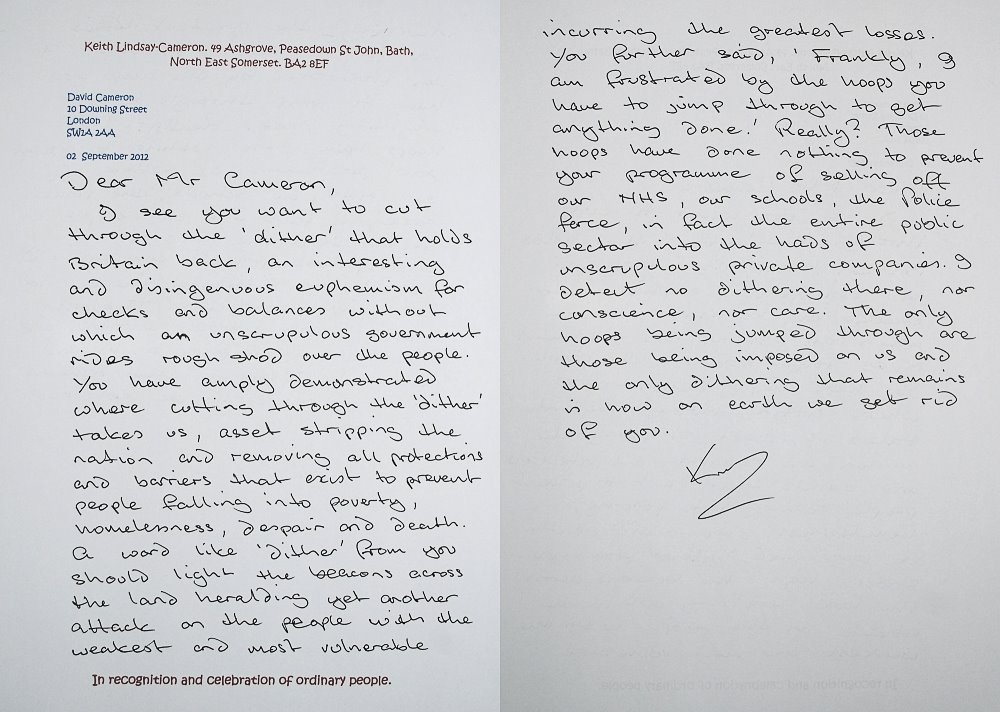 Keith Lindsay-Cameron. 49 Ashgrove, Peasedown St John, Bath,
North East Somerset. BA2 8EF
David Cameron
10 Downing Street
London
SW1A 2AA
02 September 2012
Dear Mr Cameron,
I see you want to cut
through the 'dither' that holds
Britain back, an interesting
and disingenuous euphemism for
checks and balances without
which an unscrupulous government
rides rough shod over the people.
You have amply demonstrated
where cutting through the 'dither'
takes us, asset stripping the
nation and removing all protections
and barriers that exist to prevent
people falling into poverty,
homelessness, despair and death.
A word like 'dither' from you
should light the beacons across
the land heralding yet another
attack on the people with the
weakest and most vulnerable
In recognition and celebration of ordinary people.
incurring the greatest losses.
You further said, 'Frankly, I
am frustrated by the hoops you
have to jump through to get
anything done.' Really? Those
hoops have done nothing to prevent
your programme of selling off
our NHS, our schools, the Police
force, in fact the entire public
sector into the hads of
unscrupulous private companies. I
detect no dithering there, nor
conscience, nor care. The only
hoops being jumped through are
those being imposed on us and
the only dithering that remains
is how on earth we get rid
of you.